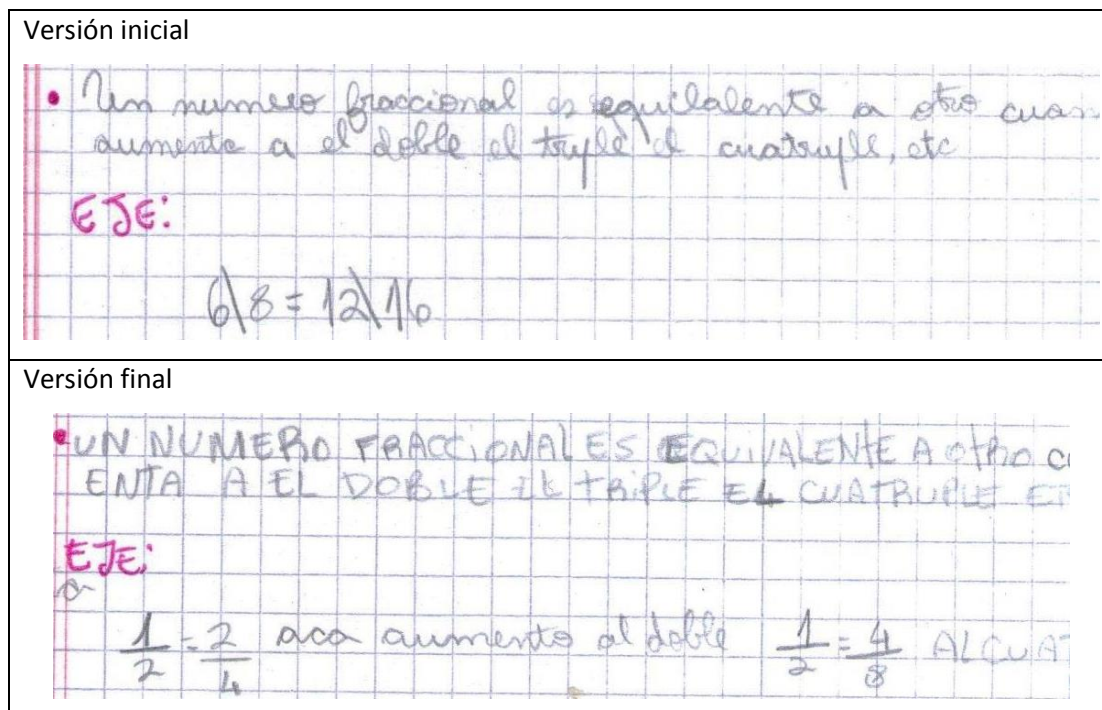 Versión inicial
• Un numero fraccional es equilalente a otro cuan
aumenta a el doble el triple el cuatruple, etc
EJE:
6\8 = 12\16
Versión final
• UN NUMERO FRACCIONAL ES EQUIVALENTE A OTRO C
ENTA A EL DOBLE EL TRIPLE EL CUATRUPLE ET
EJE:
1/2 = 2/4 aca aumento al doble 1/2 = 4/8 AL CUAT